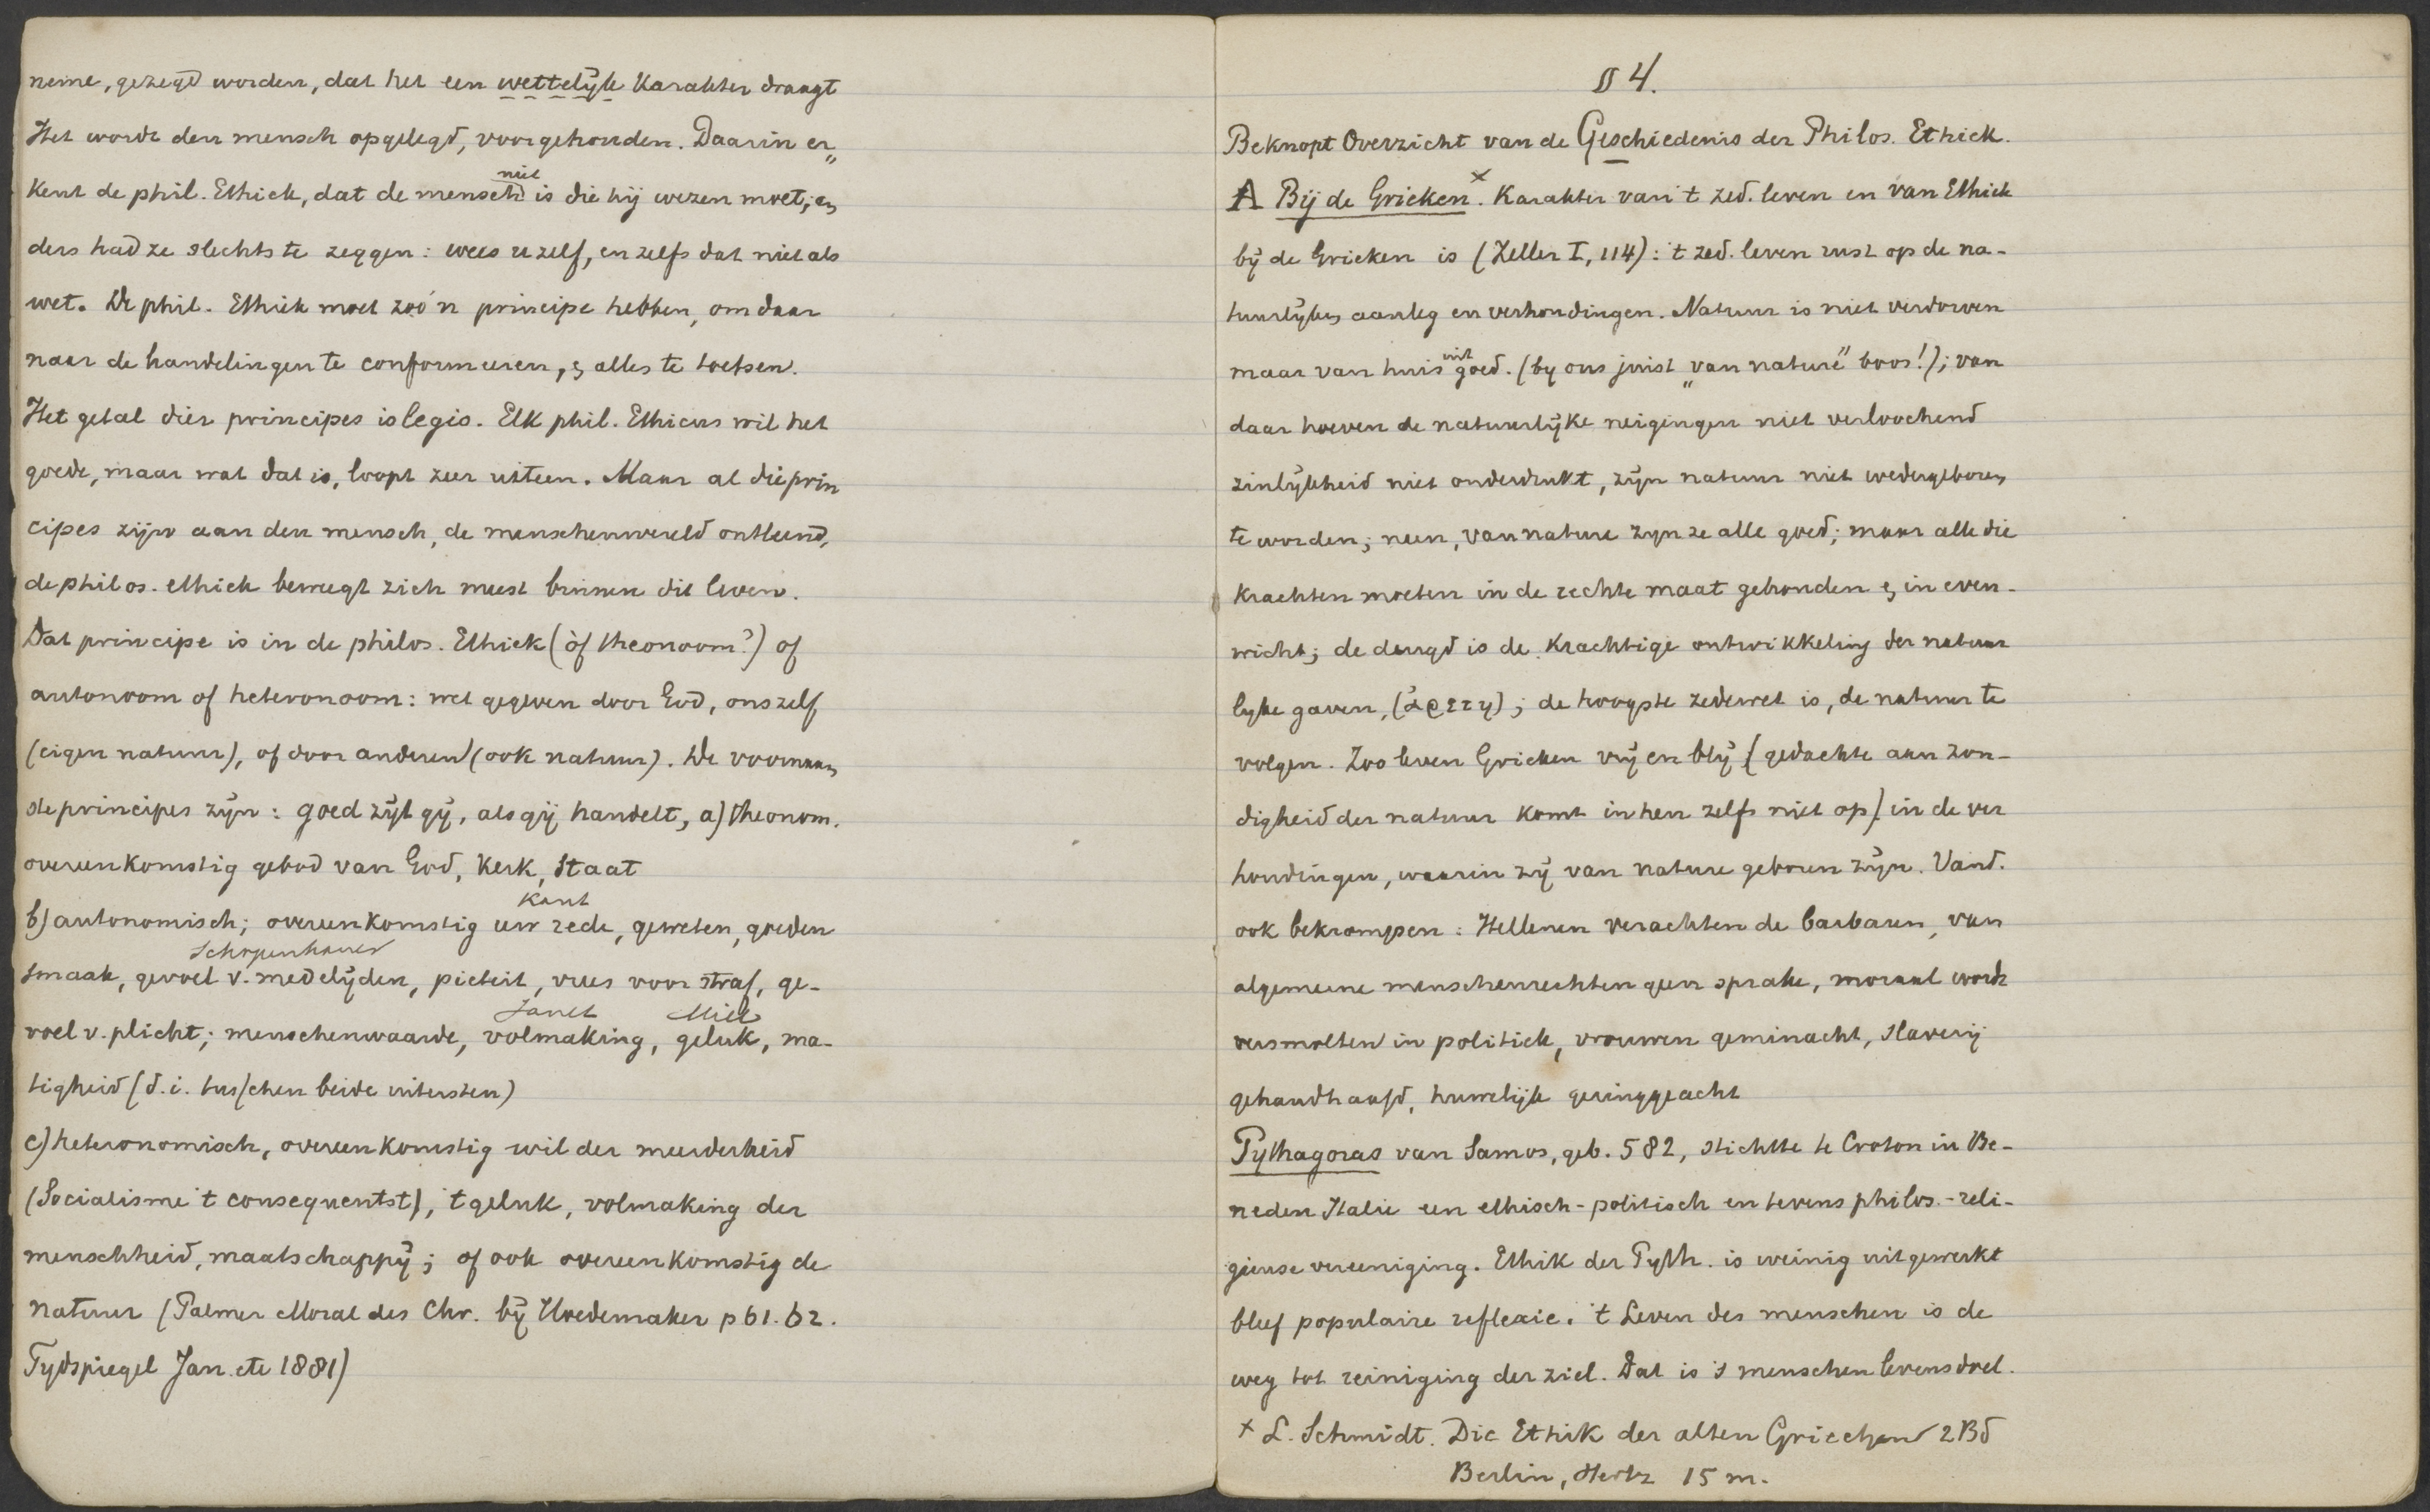 neme, gezegd worden, dat het een wettelijk Karakter draagt
Het wordt den mensch opgelegd, voorgehouden. Daarin er„
Kent de phil. Ethiek, dat de mensch niet is die hij wezen moet; an
ders had ze slechts te zeggen: wees u zelf, en zelfs dat niet als
wet. De phil. Ethiek moet zoo'n principe hebben, om daar
naar de handelingen te conformeeren, & alles te toetsen.
Het getal dier principes is legio. Elk phil. Ethicus wil het
goede, maar wat dat is, loopt zeer uiteen. Maar al die prin
cipes zijn aan den mensch, de menschenwereld ontleend,
de philos. ethiek beweegt zich meest binnen dit leven.
Dat principe is in de philos. Ethiek (òf theonoom?) of
autonoom of heteronoom: wet gegeven door God, ons zelf
(eigen natuur), of door anderen (ook natuur). De voornaam
ste principes zijn: goed zijt gij, als gij handelt, a) theonom.
overeenkomstig gebod van God, Kerk, Staat
Kant
b) autonomisch; overeenkomstig uw rede, geweten, goeden
Schopenhauer
smaak, gevoel v. medelijden, pieteit, vrees voor straf, ge-
Janet Mill
voel v. plicht; menschenwaarde, volmaking, geluk, ma-
tigheid (d.i. tusschen beide uitersten)
c) heteronomisch, overeenkomstig wil der meerderheid
(Socialisme 't consequentst), 't geluk, volmaking der
menschheid, maatschappij; of ook overeenkomstig de
natuur (Palmer Moral des Chr. bij Hoedemaker p 61. 62.
Tydspiegel Jan. etc 1881)
§ 4.
Beknopt Overzicht van de Geschiedenis der Philos. Ethiek.
A Bij de Grieken. x Karakter van 't zed. leven en van Ethiek
bij de Grieken is (Zeller I, 114): 't zed. leven rust op de na-
tuurlijken aanleg en verhoudingen. Natuur is niet verdorven
maar van huis uit goed. (by ons juist „van nature" boos!); van
daar hoeven de natuurlijke neigingen niet verloochend
zinlijkheid niet onderdrukt, zijn natuur niet wedergeboren
te worden; neen, van nature zyn ze alle goed; maar alle die
Krachten moeten in de rechte maat gehouden & in even-
wicht; de deugd is de Krachtige ontwikkeling der natuur
lyke gaven, (ἀρετη); de hoogste zedewet is, de natuur te
volgen. Zoo leven Grieken vrij en blij (gedachte aan zon-
digheid der natuur komt in hen zelfs niet op) in de ver
houdingen, waarin zij van nature geboren zijn. Vand.
ook bekrompen: Hellenen verachten de barbaren, van
algemeene menschenrechten geen sprake, moraal wordt
versmolten in politiek, vrouwen geminacht, slavernij
gehandhaafd, huwelijk geringgeacht
Pythagoras van Samos, geb. 582, stichtte te Croton in Be-
neden Italie een ethisch-politisch en tevens philos.-reli-
gieuse vereeniging. Ethik der Pyth. is weinig uitgewerkt
bleef populaire reflexie. 't Leven des menschen is de
weg tot reiniging der ziel. Dat is 's menschen levensdoel.
x L. Schmidt. Die Ethik der alten Griechen 2 Bd
Berlin, Hertz 15 m.